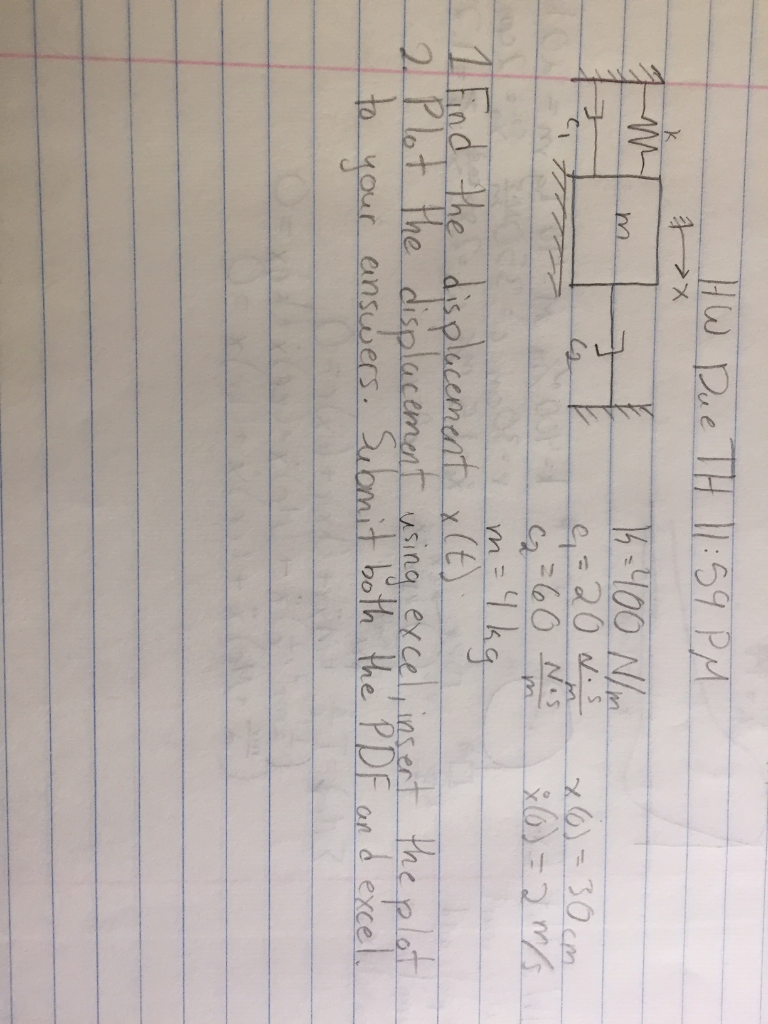 HW Due TH 11:59 PM
x
k
m
c₁
c₂
k = 400 N/m
c₁ = 20 N·s/m
c₂ = 60 N·s/m
m = 4 kg
x(0) = 30 cm
ẋ(0) = 2 m/s
1. Find the displacement x(t).
2. Plot the displacement using excel, insert the plot
to your answers. Submit both the PDF and excel.